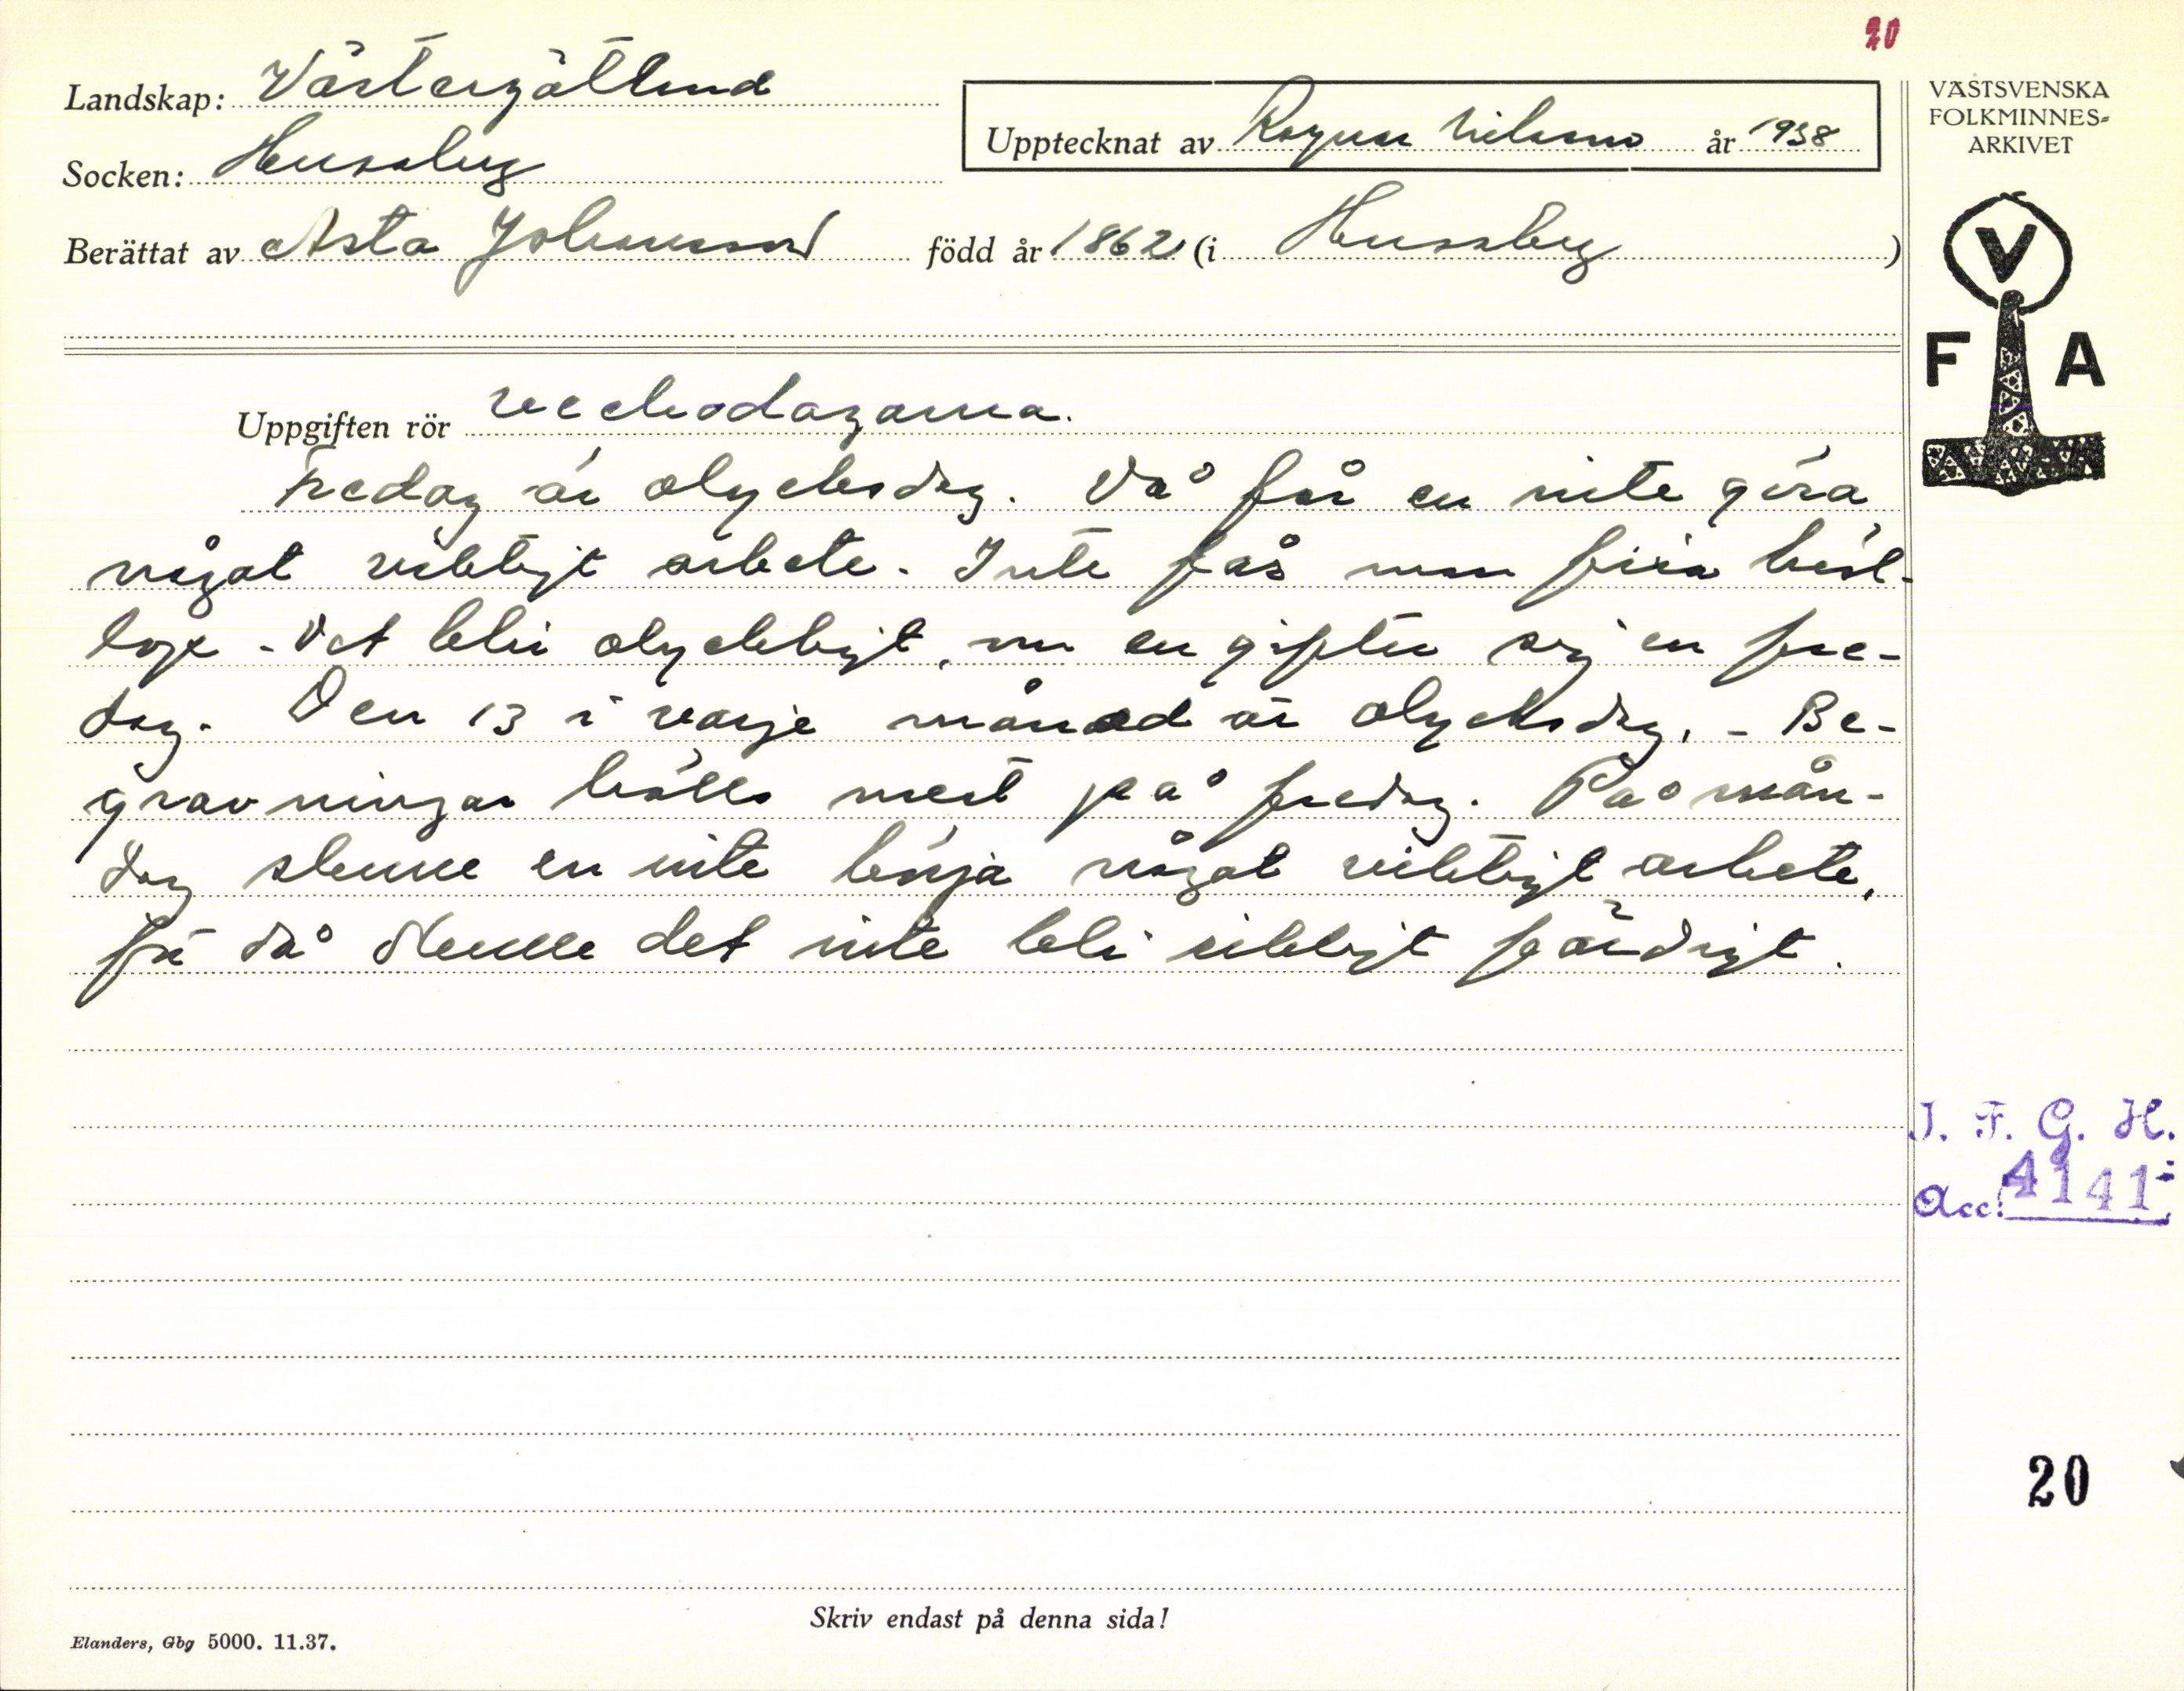 20
Landskap: Västergötland
Socken: Husaby
Upptecknat av Ragnar Nilsson år 1938
Berättat av Asta Johansson född år 1862 (i Husaby)
VÄSTSVENSKA
FOLKMINNES=
ARKIVET
V
F A
Uppgiften rör veckodagarna.
Fredag är olycksdag. Då får en inte göra
något viktigt arbete. Inte får man fira bröl-
lop. Det blir olyckligt, om en gifter sig en fre-
dag. Den 13 i varje månad är olycksdag. - Be-
gravningar hölls mest på fredag. På mån-
dag skulle en inte börja något viktigt arbete,
för då skulle det inte bli riktigt färdigt.
I. F. G. H.
Acc: 4141
20
Skriv endast på denna sida!
Elanders, Gbg 5000. 11.37.